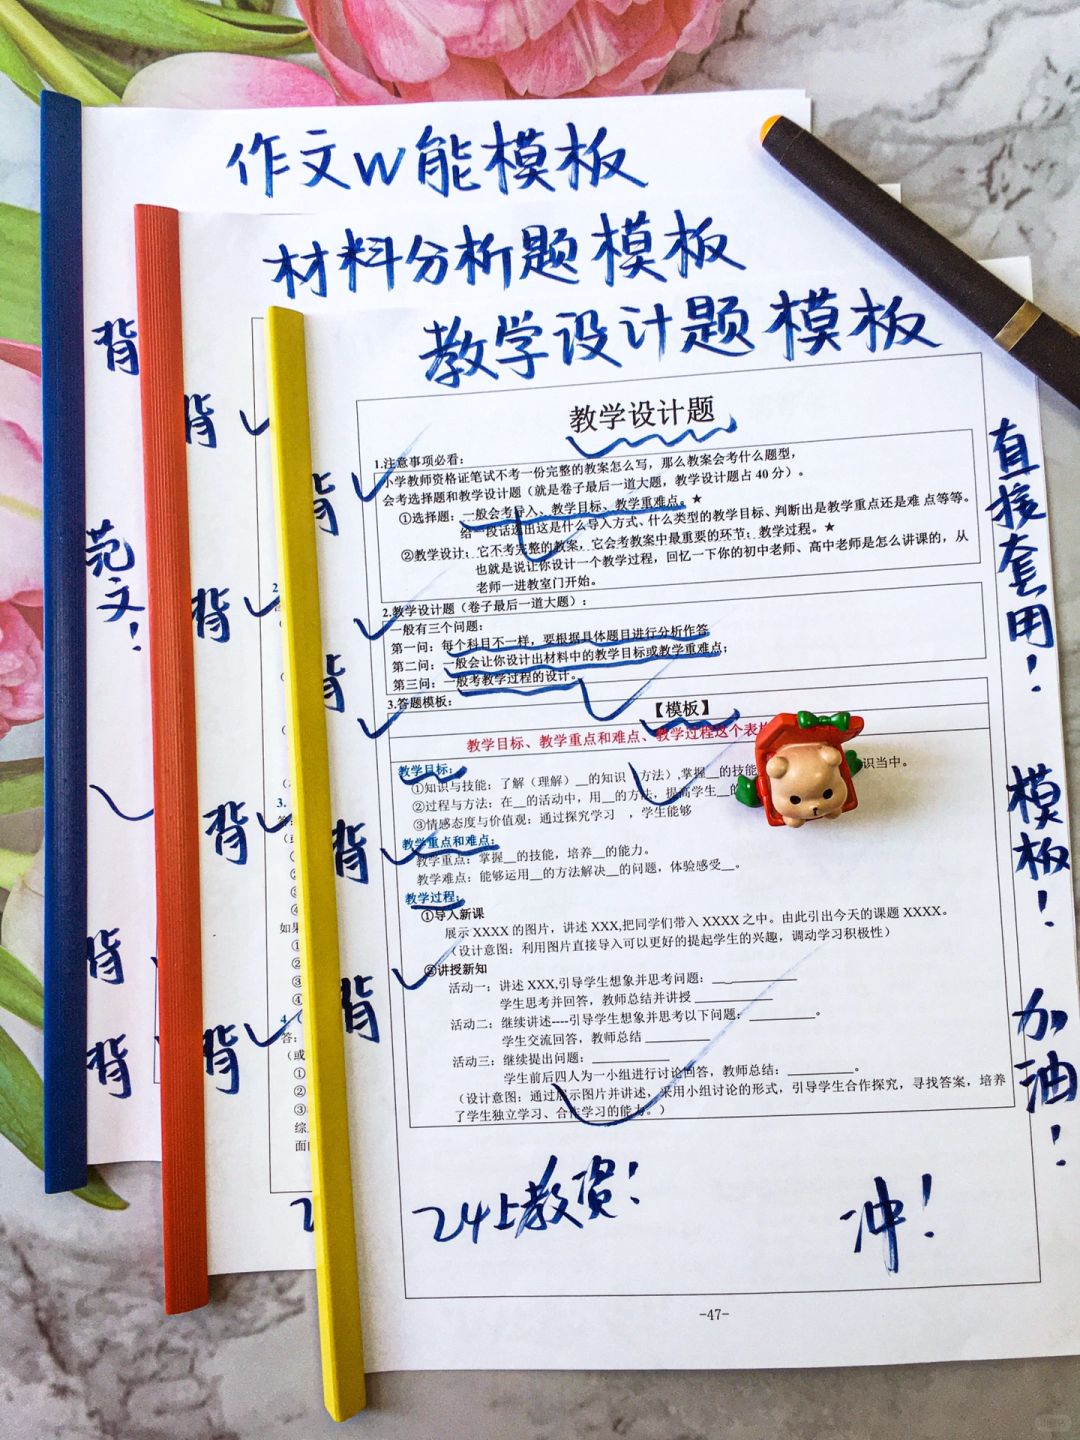 作文w能模板
材料分析题模板
教学设计题模板
背
背
背
范文！
背
背
背
背
背
背
背
背
背
直接套用！
模板！
加油！
教学设计题
1.注意事项必看：
小学教师资格证笔试不考一份完整的教案怎么写，那么教案会考什么题型，
会考选择题和教学设计题（就是卷子最后一道大题，教学设计题占 40 分）。
①选择题：一般会考导入、教学目标、教学重难点。★
给一段话选出这是什么导入方式、什么类型的教学目标、判断出是教学重点还是难 点等等。
②教学设计：它不考完整的教案，它会考教案中最重要的环节：教学过程。★
也就是说让你设计一个教学过程，回忆一下你的初中老师、高中老师是怎么讲课的，从
老师一进教室门开始。
2.教学设计题（卷子最后一道大题）：
一般有三个问题：
第一问：每个科目不一样，要根据具体题目进行分析作答
第二问：一般会让你设计出材料中的教学目标或教学重难点；
第三问：一般考教学过程的设计。
3.答题模板：
【模板】
教学目标、教学重点和难点、教学过程这个表
教学目标：
①知识与技能：了解（理解）__的知识（方法），掌握__的技能 识当中。
②过程与方法：在__的活动中，用__的方法，提高学生__的
③情感态度与价值观：通过探究学习 ，学生能够
教学重点和难点：
教学重点：掌握__的技能，培养__的能力。
教学难点：能够运用__的方法解决__的问题，体验感受__。
教学过程：
①导入新课
展示 XXXX 的图片，讲述 XXX,把同学们带入 XXXX 之中。由此引出今天的课题 XXXX。
（设计意图：利用图片直接导入可以更好的提起学生的兴趣，调动学习积极性）
②讲授新知
活动一：讲述 XXX,引导学生想象并思考问题：____________
学生思考并回答，教师总结并讲授____________
活动二：继续讲述----引导学生想象并思考以下问题：__________。
学生交流回答，教师总结__________
活动三：继续提出问题：____________
学生前后四人为一小组进行讨论回答，教师总结：__________。
（设计意图：通过展示图片并讲述，采用小组讨论的形式，引导学生合作探究，寻找答案，培养
了学生独立学习、合作学习的能力。）
24上教资！
冲！
-47-